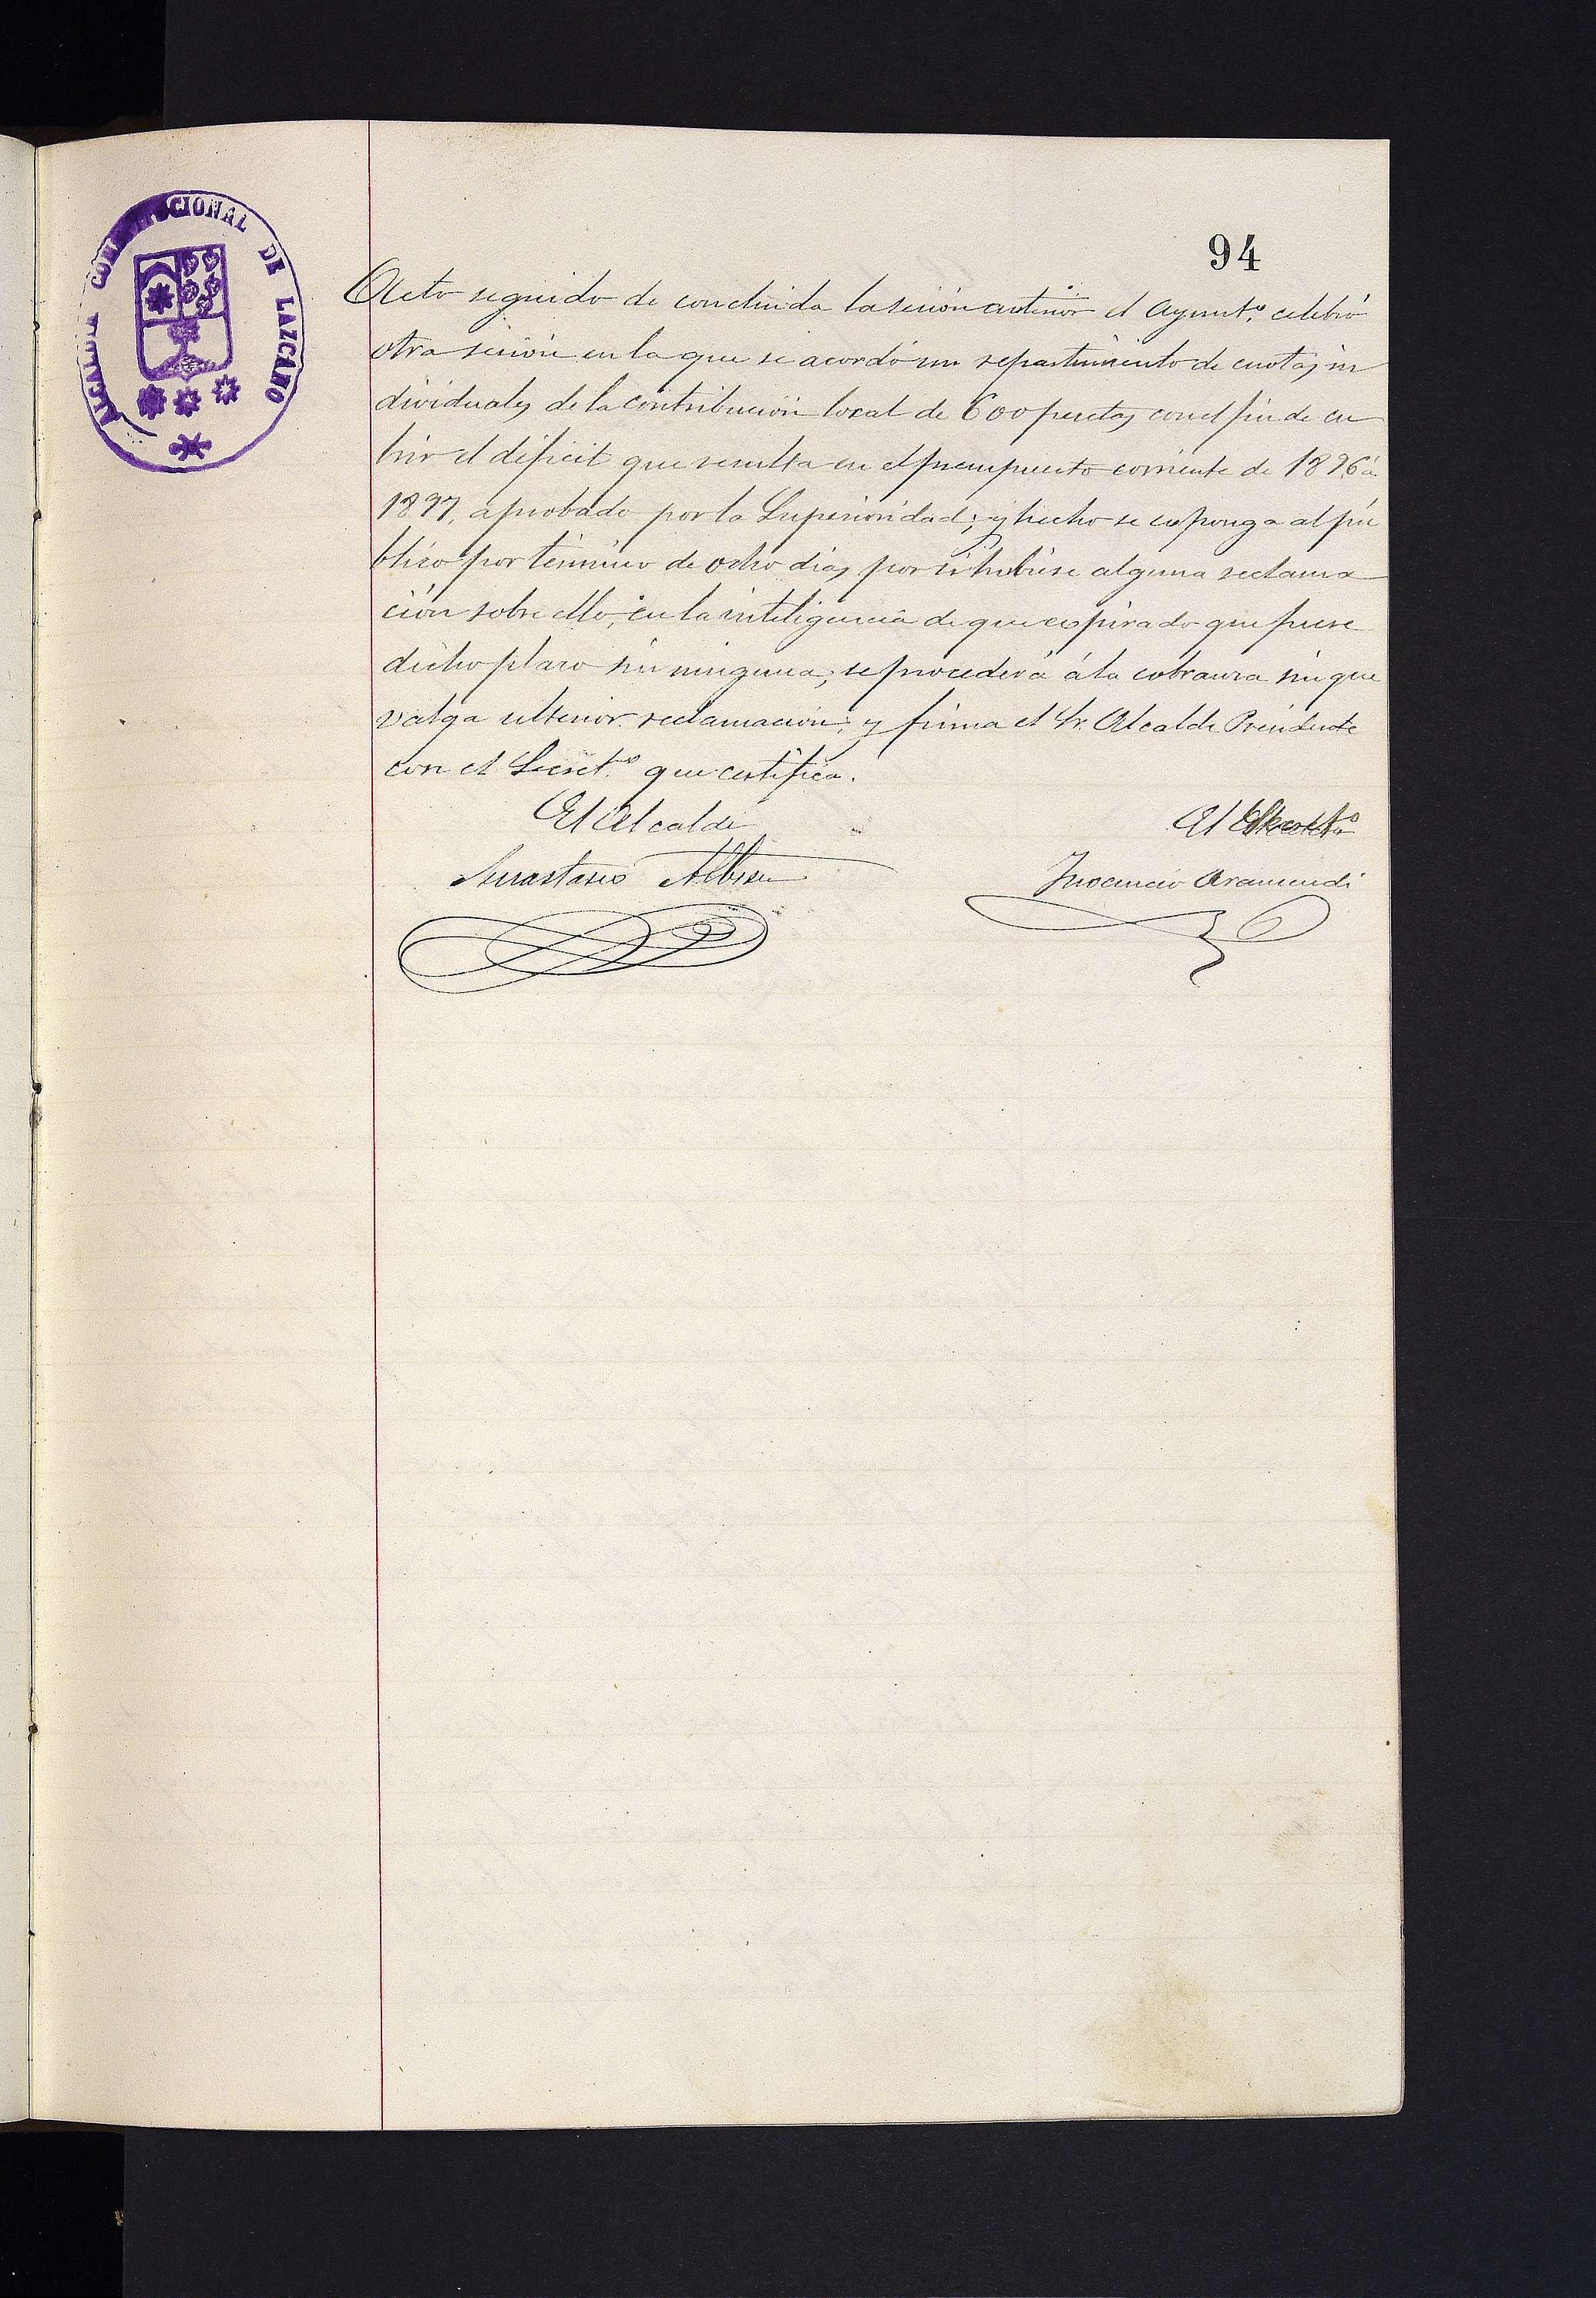 94
ALCALDIA CONSTITUCIONAL DE LAZCANO
Acto seguido de concluida la sesión anterior el Ayunt.º celebró
otra sesión en la que se acordó un repartimiento de cuotas in
dividuales de la contribución local de 600 pesetas con el fin de cu
brir el déficit que resulta en el presupuesto corriente de 1896 á
1897, aprobado por la Superioridad; y hecho se esponga al pú
blico por término de ocho dias por si hubiese alguna reclama
ción sobre ello, en la inteligencia de que espirado que fuese
dicho plazo sin ninguna, se procederá á la cobranza sin que
valga ulterior reclamación; y firma el Sr. Alcalde Presidente
con el Secret.º que certifica.
El Alcalde
El Secret.º
Anastasio Albisu
Inocencio Aramendi